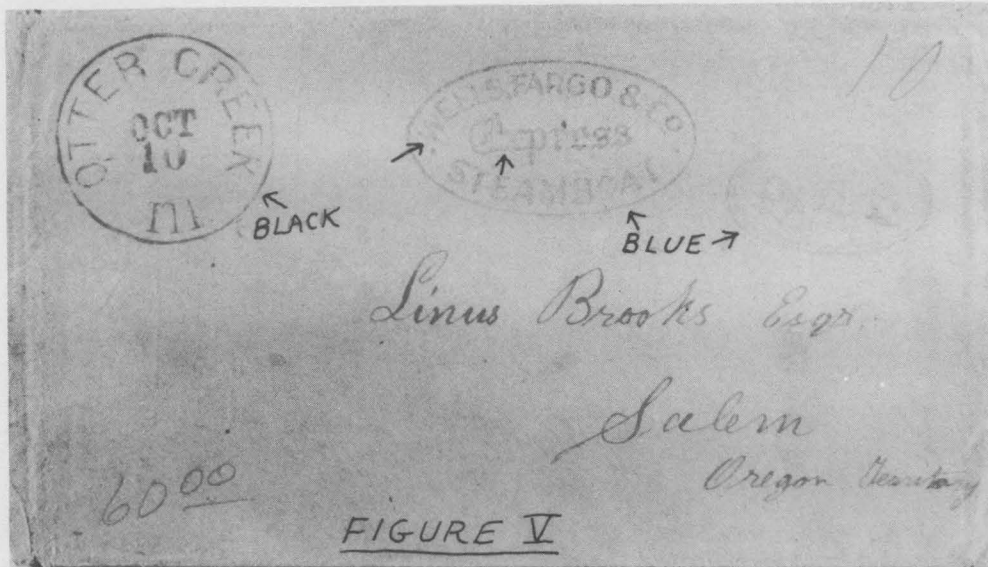 OTTER CREEK
OCT
10
Ill
BLACK
WELLS, FARGO & CO
Express
STEAMBOAT
BLUE
10
Linus Brooks Esqr.
Salem
Oregon Territory
60 00
FIGURE V